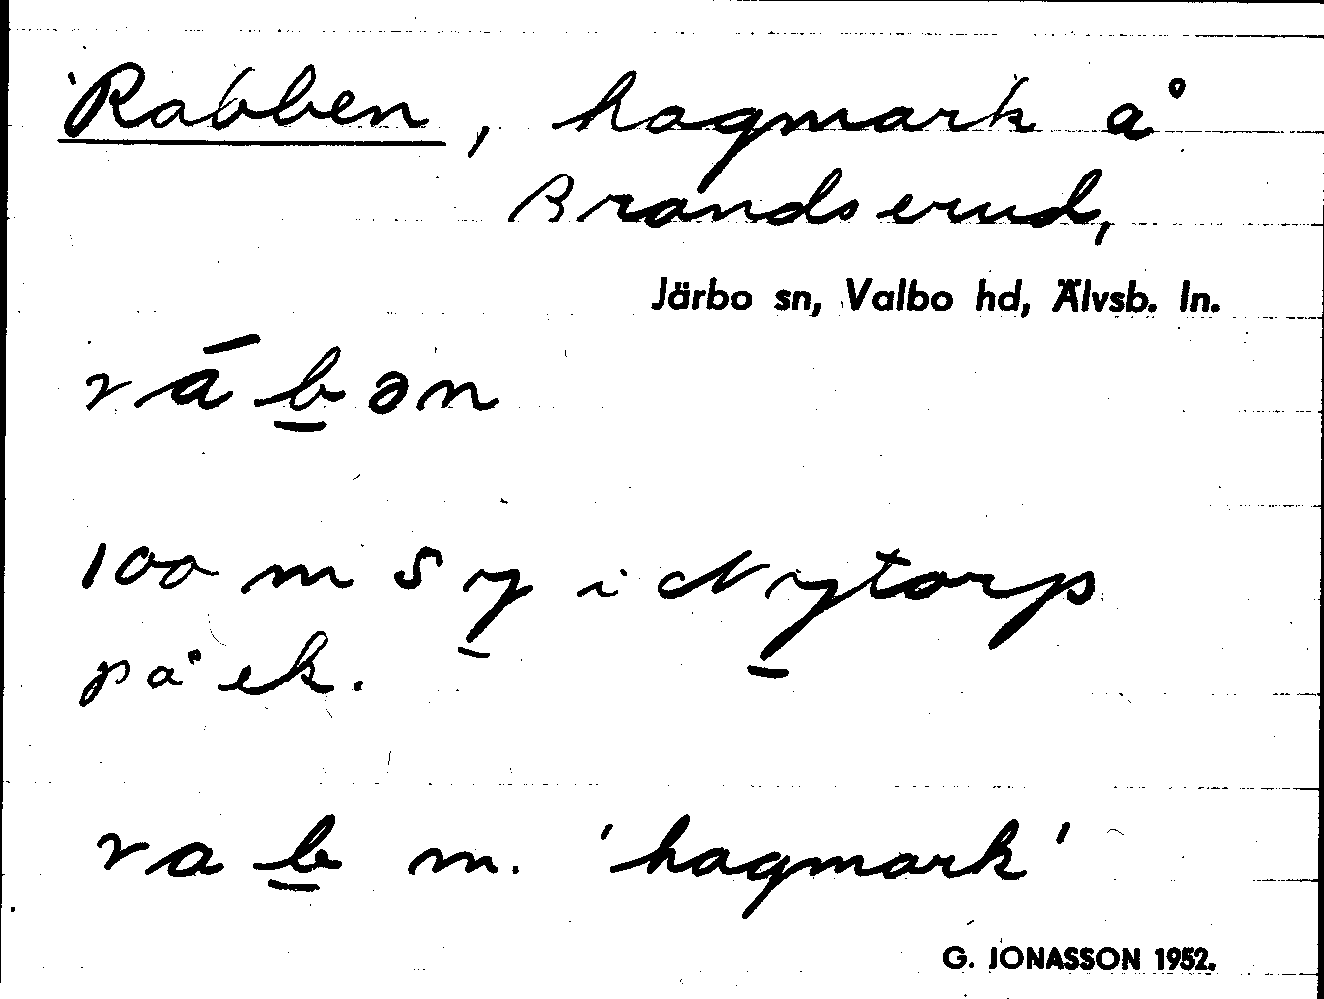 Rabben, hagmark å
Brandserud,
Järbo sn, Valbo hd, Älvsb. ln.
ráb̲ən
100 m S y̲ i Ny̲torp
på ek.
rab̲ m. 'hagmark'
G. JONASSON 1952.